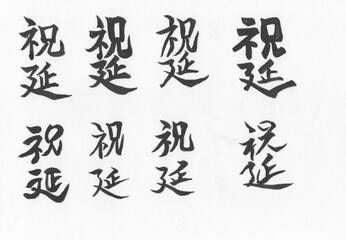 祝延
祝延
祝延
祝延
祝延
祝延
祝延
祝延